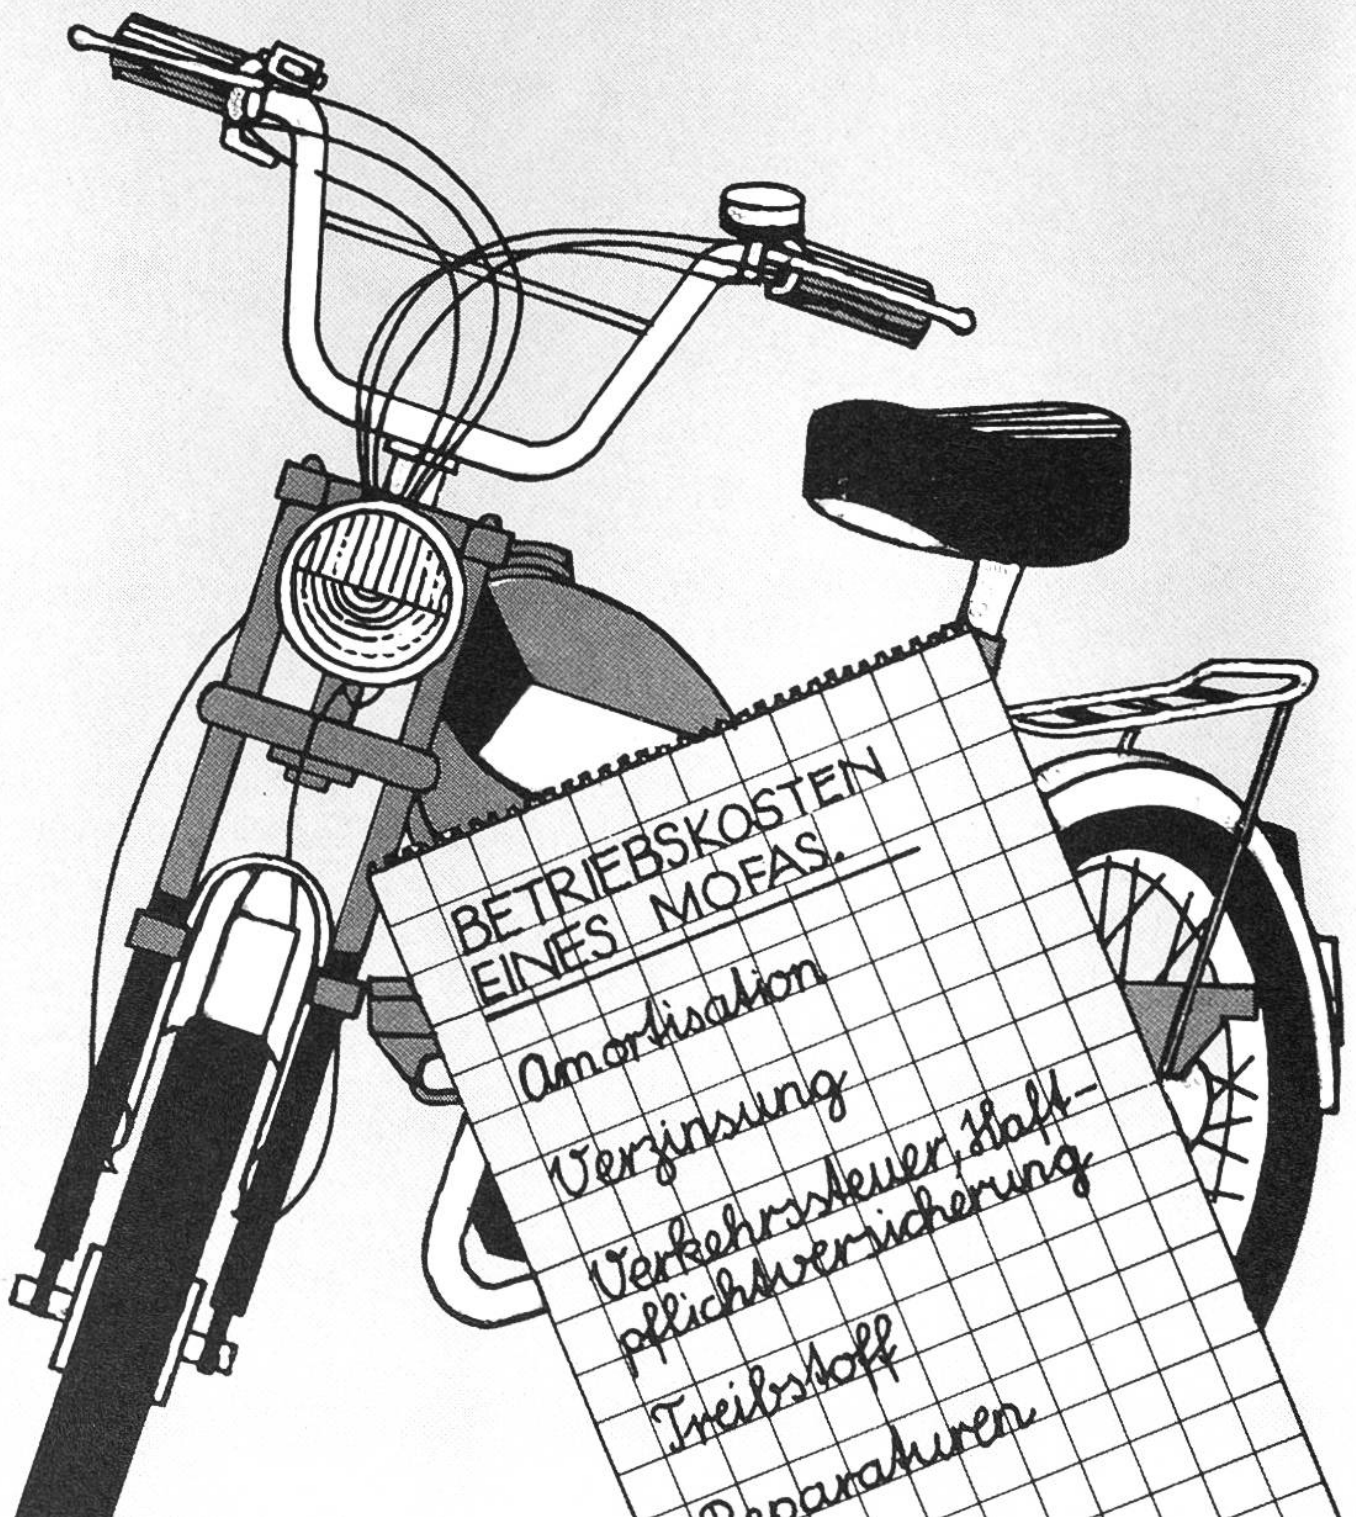 BETRIEBSKOSTEN
EINES MOFAS.
Amortisation
Verzinsung
Verkehrssteuer, Haft-
pflichtversicherung
Treibstoff
Reparaturen